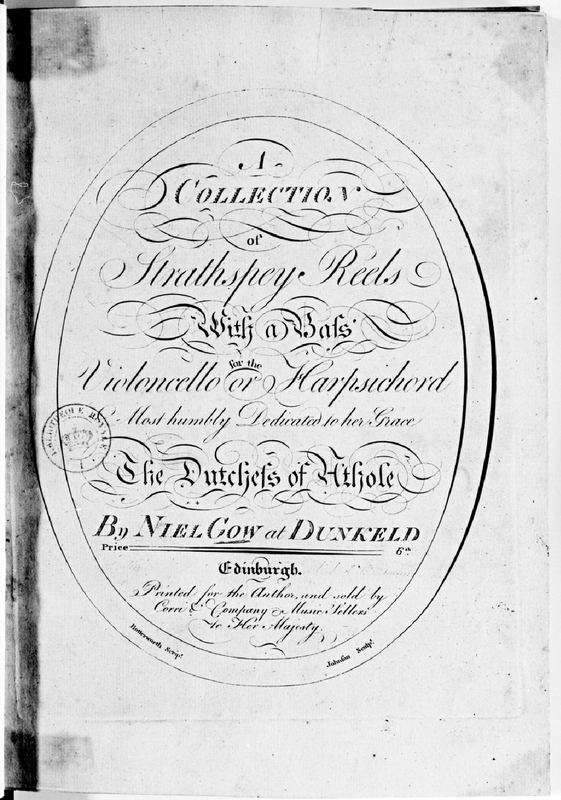 A
COLLECTION
of
Strathspey Reels
With a Baſs
for the
Violoncello or Harpsichord
Most humbly Dedicated to her Grace
The Dutcheſs of Athole
By NIEL GOW at DUNKELD
Price 6sh
Edinburgh.
Printed for the Author, and sold by
Corri & Company Music Sellers
to Her Majesty
Butterworth Script.
Johnson Sculpt.